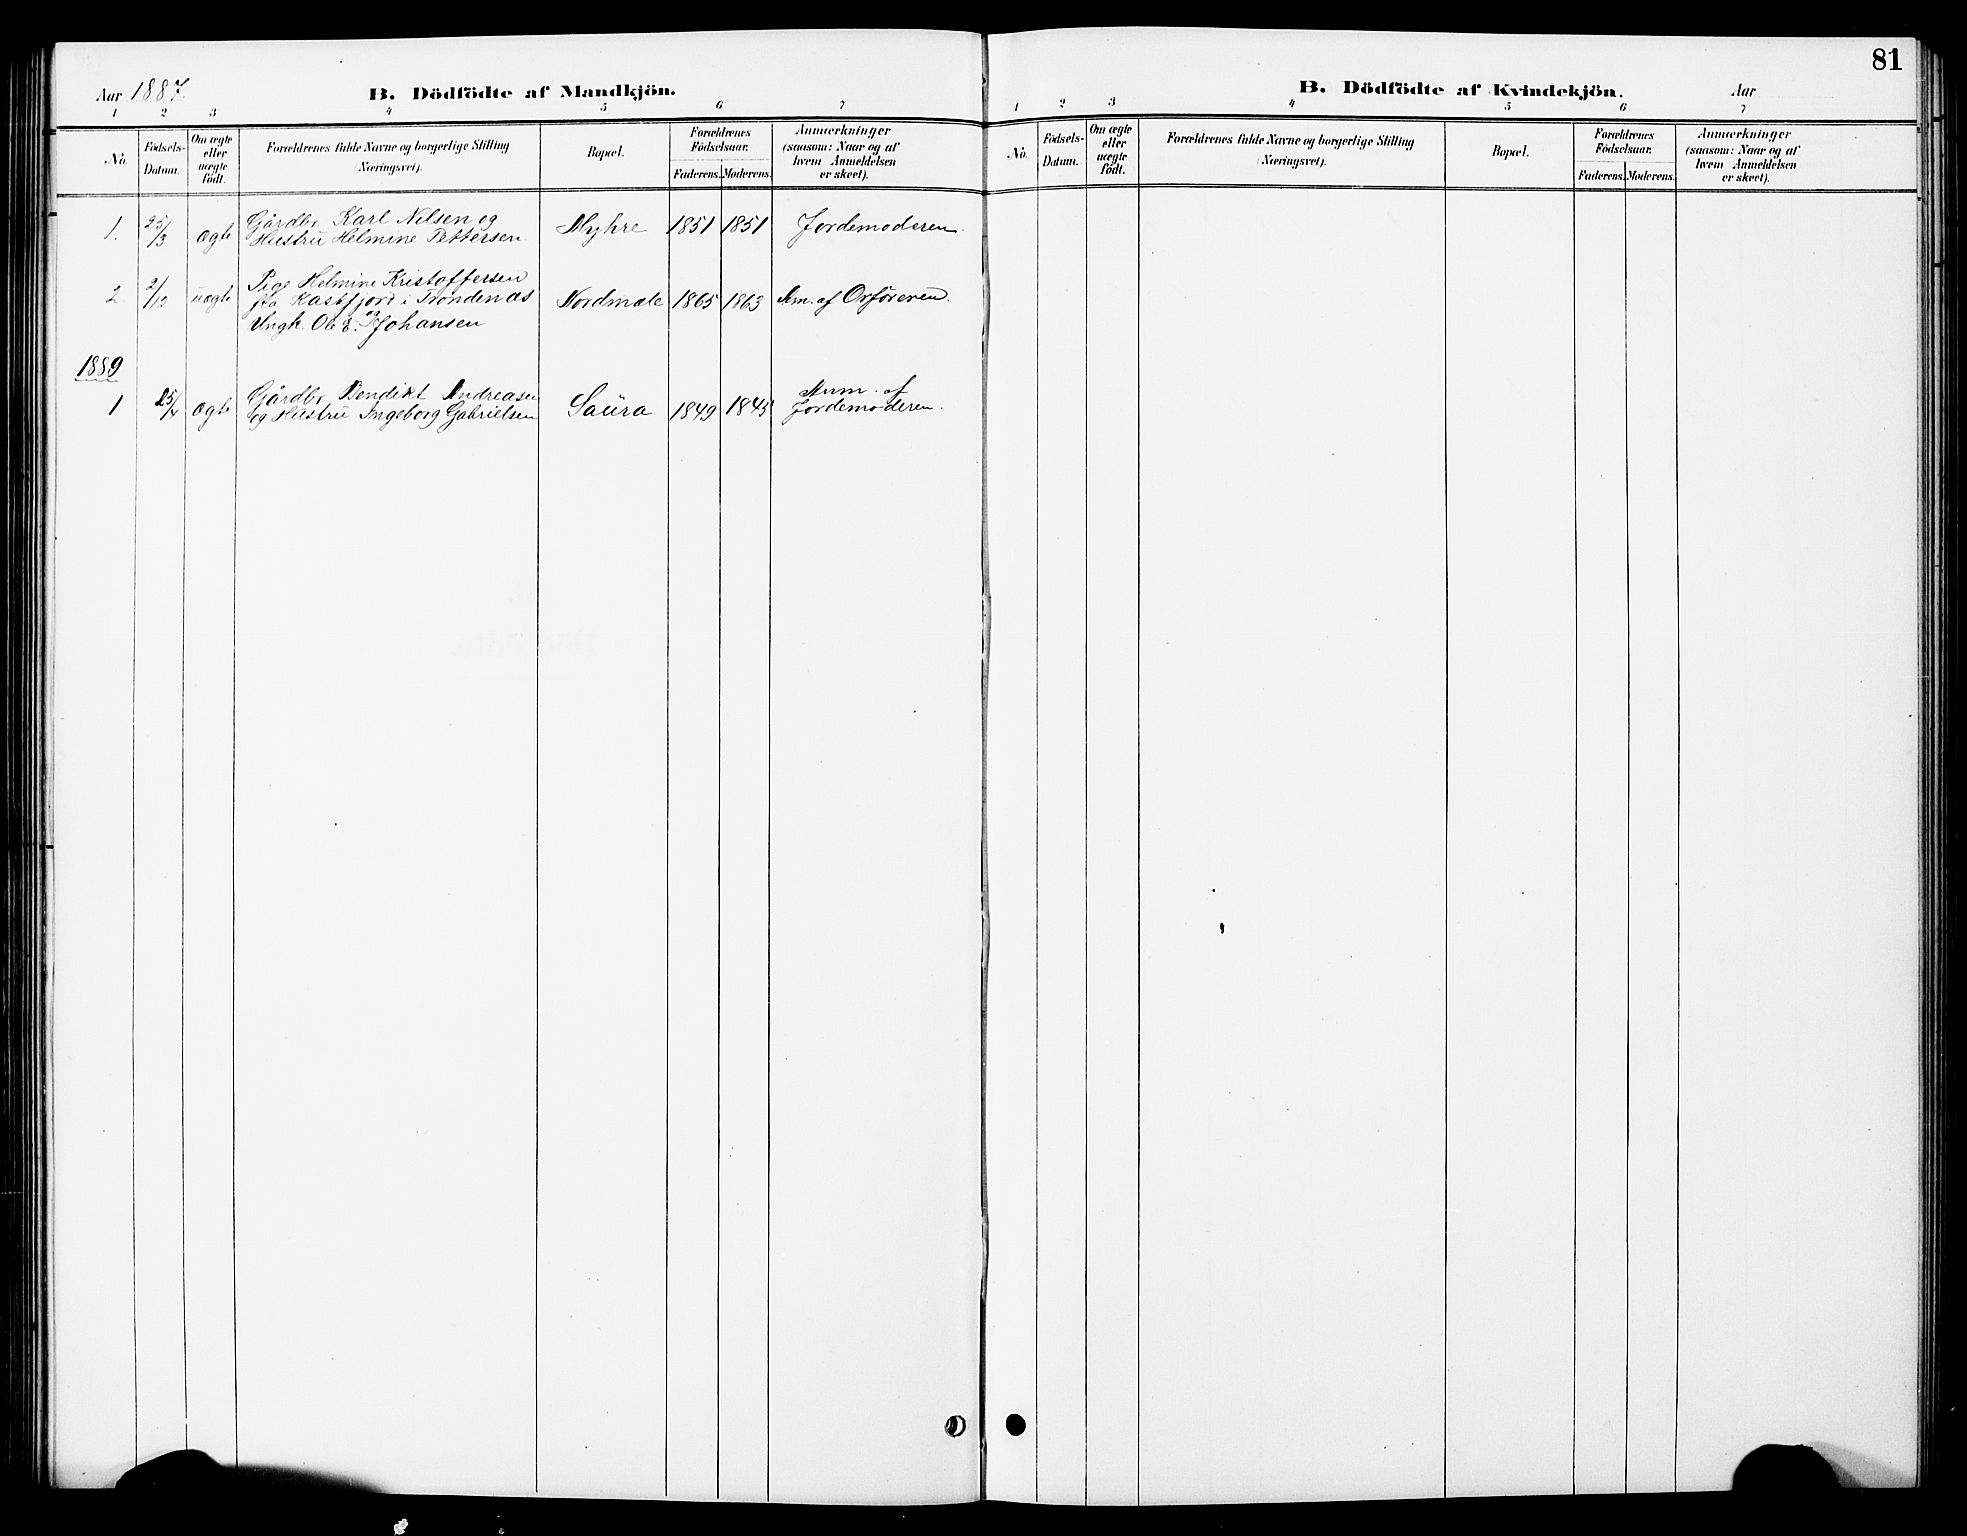 Aar 1887
B. Dödfödte af Mandkjön.
1 2 3 4 5 6 7
No.
Födsels-
Datum.
Om ægte
eller
uægte
födt.
Forældrenes fulde Navne og borgerlige Stilling
(Næringsvei).
Bopæl.
Forældrenes
Födselsaar.
Faderens. Moderens.
Anmærkninger
(saasom: Naar og af
hvem Anmeldelsen
er skeet).
1. 25/3 ægte Gårdbr. Karl Nilsen og
Hustru Helmine Pettersen. Myhre 1851 1851 Jordemoderen.
2 2/12 uægte Pige Helmine Kristoffersen
fra Kastfjord i Trondenæs
og
Ungk. Ole E. Johansen
Nordmæle 1865 1863 Anm. af Orføreren.
1889
1 25/ ægte Gårdbr. Bendikt Andreasen
og Hustru Ingeborg Gabrielsen
Saura 1849 1845 Anm. af
Jordemoderen.
81
B. Dödfödte af Kvindekjön. Aar
1 2 3 4 5 6 7
No.
Födsels-
Datum.
Om ægte
eller
uægte
födt.
Forældrenes fulde Navne og borgerlige Stilling
(Næringsvei).
Bopæl.
Forældrenes
Födselsaar.
Faderens. Moderens.
Anmærkninger
(saasom: Naar og af
hvem Anmeldelsen
er skeet).